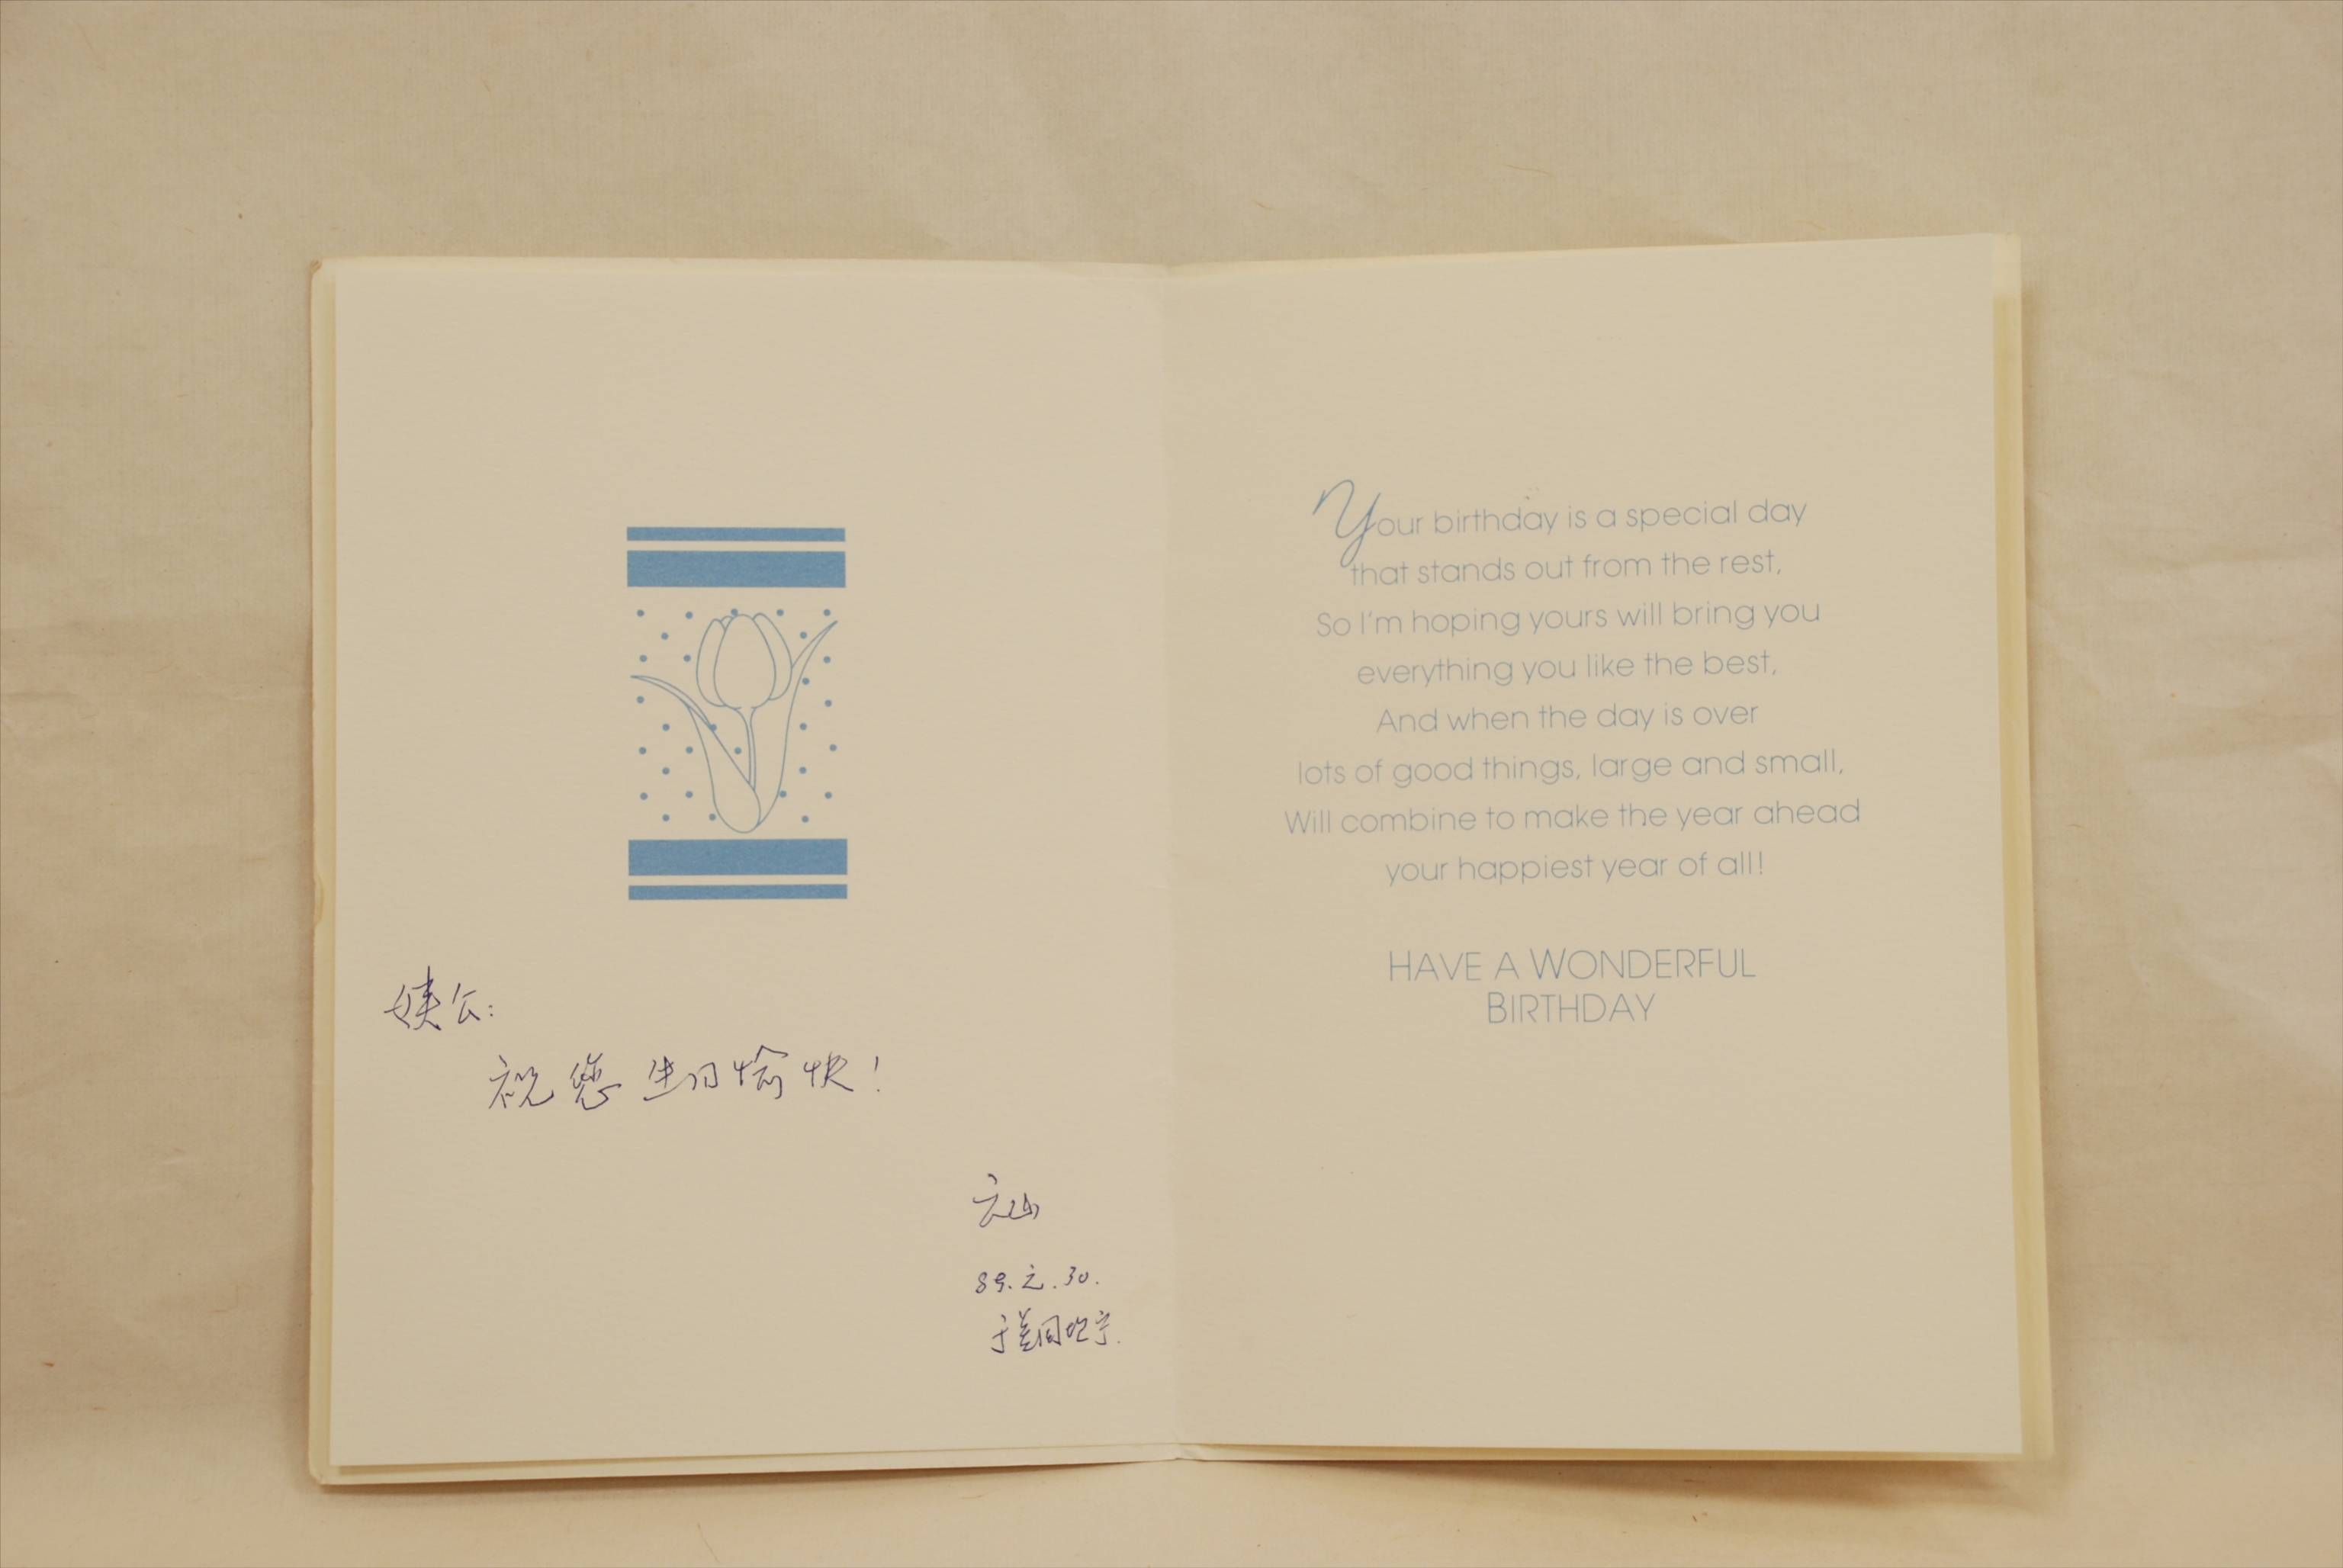 姨公:
祝您生日愉快!
89.元.30.
Your birthday is a special day
that stands out from the rest,
So I'm hoping yours will bring you
everything you like the best,
And when the day is over
lots of good things, large and small,
Will combine to make the year ahead
your happiest year of all!
HAVE A WONDERFUL
BIRTHDAY